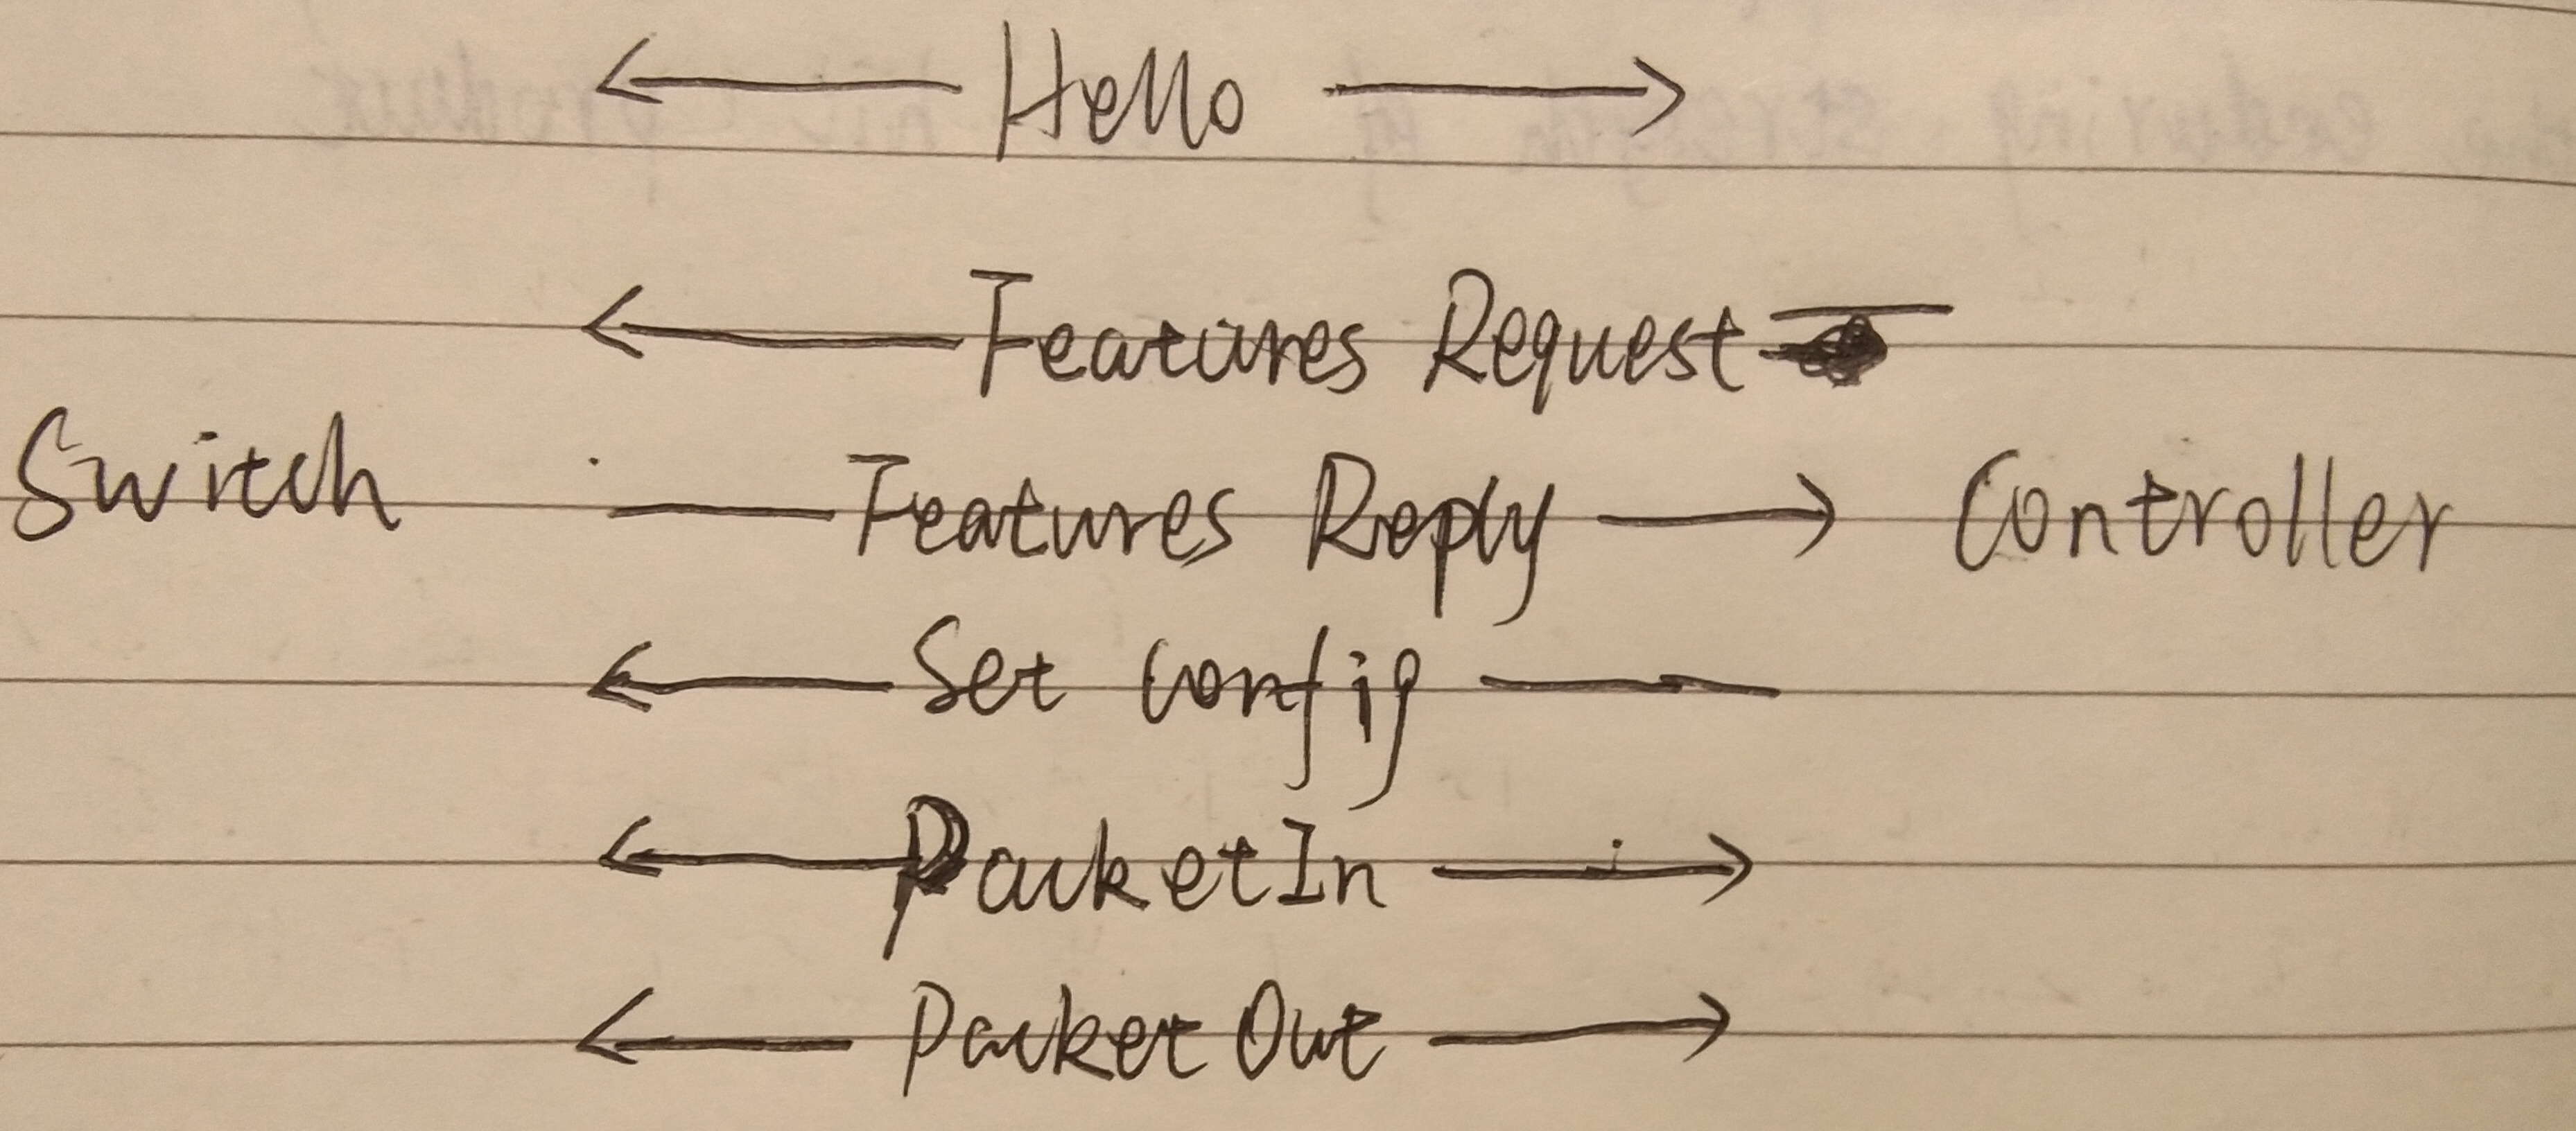 Hello
Features Request
Switch Features Reply Controller
Set config
PacketIn
Packet Out